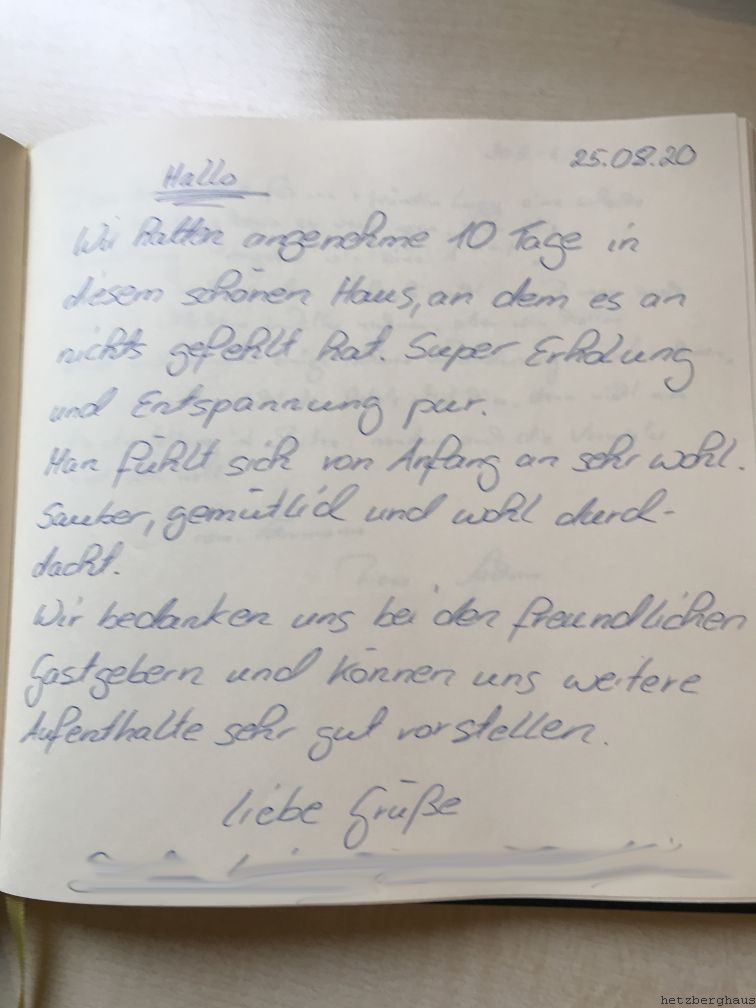 25.08.20
Hallo
Wir hatten angenehme 10 Tage in
diesem schönen Haus, an dem es an
nichts gefehlt hat. Super Erholung
und Entspannung pur.
Man fühlt sich von Anfang an sehr wohl.
Sauber, gemütlich und wohl durch-
dacht.
Wir bedanken uns bei den freundlichen
Gastgebern und können uns weitere
Aufenthalte sehr gut vorstellen.
liebe Grüße
hetzberghaus